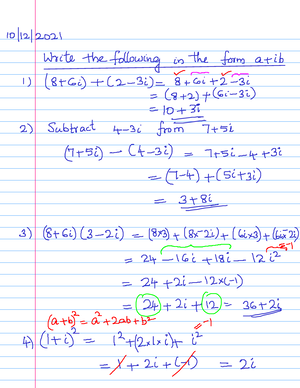 10/12/2021
Write the following in the form a+ib
1) (8+6i)+(2-3i)= 8+6i+2-3i
= (8+2)+(6i-3i)
= 10+3i
2) Subtract 4-3i from 7+5i
(7+5i) - (4-3i) = 7+5i-4+3i
= (7-4)+(5i+3i)
= 3+8i
3) (8+6i)(3-2i) = (8x3)+(8x-2i)+(6ix3)+(6ix-2i)
= 24-16i+18i-12i² i²=-1
= 24+2i-12x(-1)
= 24+2i+12 = 36+2i
(a+b)²=a²+2ab+b²
4) (1+i)² = 1²+(2x1xi)+i² =-1
= 1+2i+(-1) = 2i